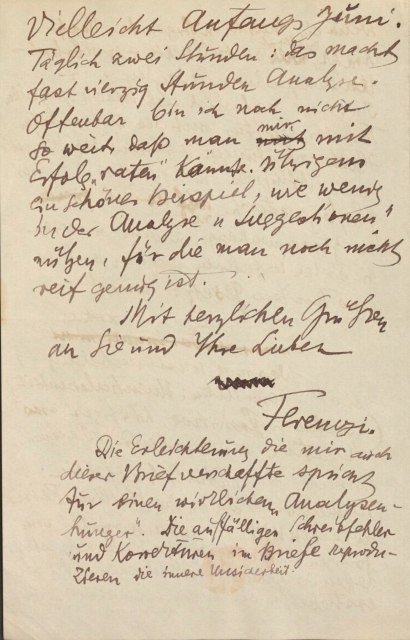 Vielleicht Anfangs Juni.
Täglich zwei Stunden: das macht
fast vierzig Stunden Analyse.
Offenbar bin ich noch nicht
so weit, daß man mir mit
Erfolg „raten“ könnte. Übrigens
ein schönes Beispiel, wie wenig
in der Analyse „Suggestionen“
nützen, für die man noch nicht
reif genug ist.
Mit herzlichen Grüßen
an Sie und Ihre Lieben
Ferenczi.
Die Erleichterung die mir auch
dieser Brief verschaffte spricht
für einen wirklichen „Analysen-
hunger“. Die auffälligen Schreibfehler
und Korrekturen im Briefe reprodu-
zieren die innere Unsicherheit.